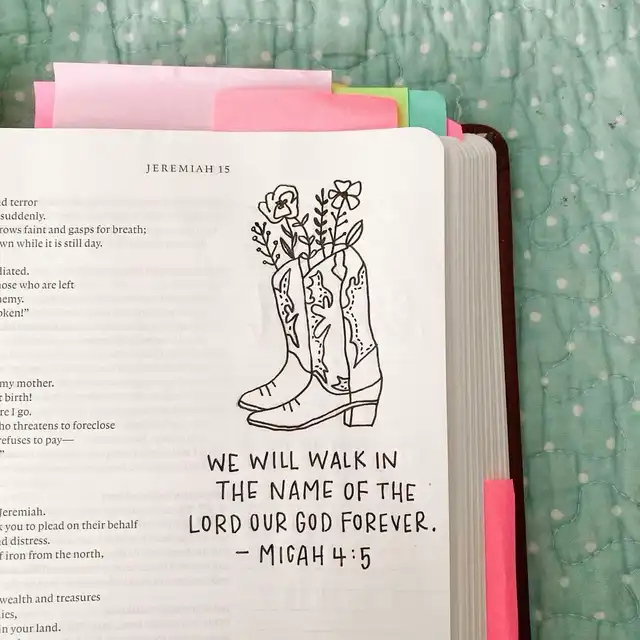 JEREMIAH 15
terror
suddenly.
rows faint and gasps for breath;
wn while it is still day.
diated.
hose who are left
nemy.
oken!"
my mother.
t birth!
re I go.
ho threatens to foreclose
refuses to pay—
"
Jeremiah.
you to plead on their behalf
distress.
f iron from the north,
wealth and treasures
ies,
in your land.
WE WILL WALK IN
THE NAME OF THE
LORD OUR GOD FOREVER.
- MICAH 4:5